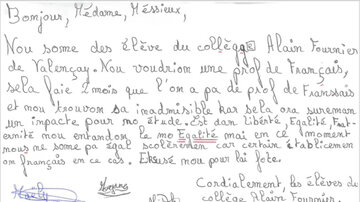 Bonjour, Médame, Méssieux,
Nou some des élève du collège Alain Fournier
de Valençay. Nou voudrion une prof de Français,
sela faie 2 mois que l'on a pa de prof de Franssais
et nou trouvon sa inadmisible kar sela ora suremam
un impacte pour no étude. Est dan Liberté, Egalité, Frat-
ernité nou entandon le mo Egalité mai en ce moment
nous ne some pa égal scolerement car certain établicement
om français en ce cas. Exusé nou pour la fote.
Cordialement, les élèves du
collège Alain Fournier.